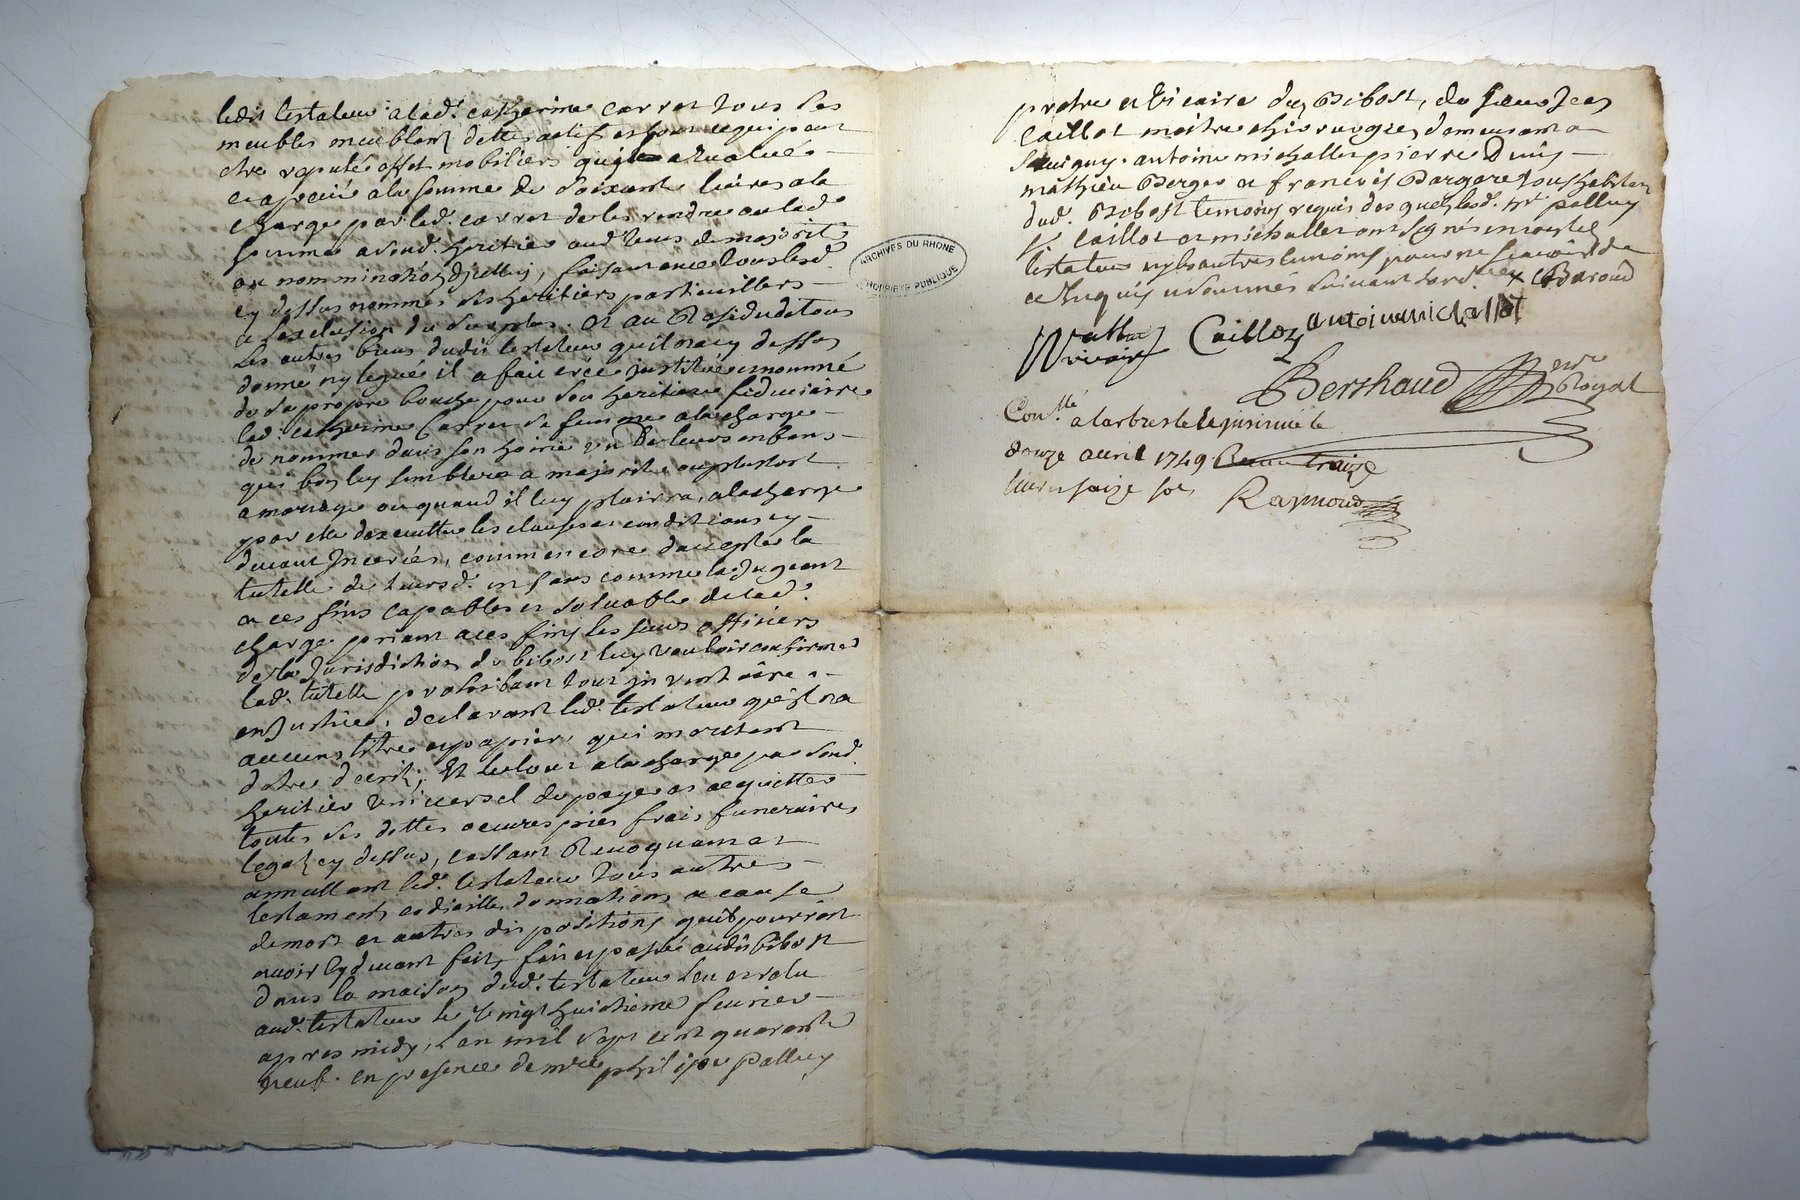 ledit testateur a lad. catherine carret tous ses
meubles meublant dettes actifs et tout ce qui peut
etre reputé effet mobiliers qu'il a evalués
et aprecié a la somme de soixante livres a la
charge par lad. carret de les rendre ou lad.
somme a sond. heritier aud. tems de majorité
ou nommination d'icelluy, faisant avec tous lesd.
cy dessus nommés ses heritiers particulliers
a l'exclusion du surplus. Et au Residu de tous
les autres biens dudit testateur qu'il n'a cy dessus
donné ny legué il a fait créé institué et nommé
de sa propre bouche pour son heritiere fiduciaire
lad. catherine Carret sa femme a la charge
de nommer dans son hoirie un de leurs enfans
qui bon luy semblera a majorité ou plustost
a mariage ou quand il luy plaira, a la charge
par elle d'exécutter les clauses et conditions cy
devant Inserées, comm'encore d'accepter la
tutelle de leursd. enfans comme la Jugeant
a ces fins capable et solvable de lad.
charge priant a ces fins les sieurs officiers
de la Jurisdiction de bibost luy vouloir confirmer
lad. tutelle prohibant tout inventaire
en Justice, declarant led. testateur qu'il n'a
aucuns titre ny papier, qui meritent
d'etre decrit; Et le tout a la charge par sond.
heritier universel de payer et acquitter
toutes ses dettes oeuvres pies frais funeraires
legat cy dessus, cassant Revoquant et
annullant led. testateur tous autres
testaments codicilles donnations a cause
de mort et autres dispositions qu'il pourroit
avoir cy devant fait, fait et passé audit bibost
dans la maison dud. testateur leu et relu
aud. testateur le vingt huictieme fevrier
apres midy, l'an mil sept cent quarante
neuf. en presence de mre philipe Palluy
ARCHIVES DU RHONE
PROPRIETE PUBLIQUE
pretre et Vicaire du Bibost, du sieur Jean
Caillot maitre chirurgien demeurant a
Savigny. antoine michallet pierre Duny
mathieu Berger et francois Bargere tous habitan
dud. Bibost temoins requis desquels led. Sr palluy
Sr Caillot et michallet ont signés non led.
testateur ny les autres temoins pour ne scavoir de
ce Enquis et sommés suivant l'ord.
vicaire Caillot antoinemichallet
Berthaud nore Royal
Conllé a larbresle le
douze avril 1749 treize
livres saize sols Raymond